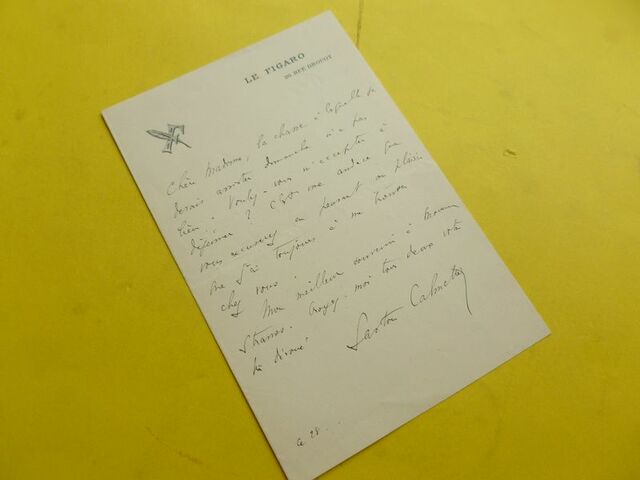 LE FIGARO
26 RUE DROUOT
F
Chère Madame, la chasse à laquelle je
devais assister dimanche n'a pas
lieu. Voulez-vous m'accepter à
déjeuner ? C'est une audace que
vous excuserez en pensant au plaisir
que j'ai toujours à me trouver
chez vous.
Mon meilleur souvenir à Monsieur
Strauss. Croyez-moi tous deux votre
dévoué
Gaston Calmette
Ce 28